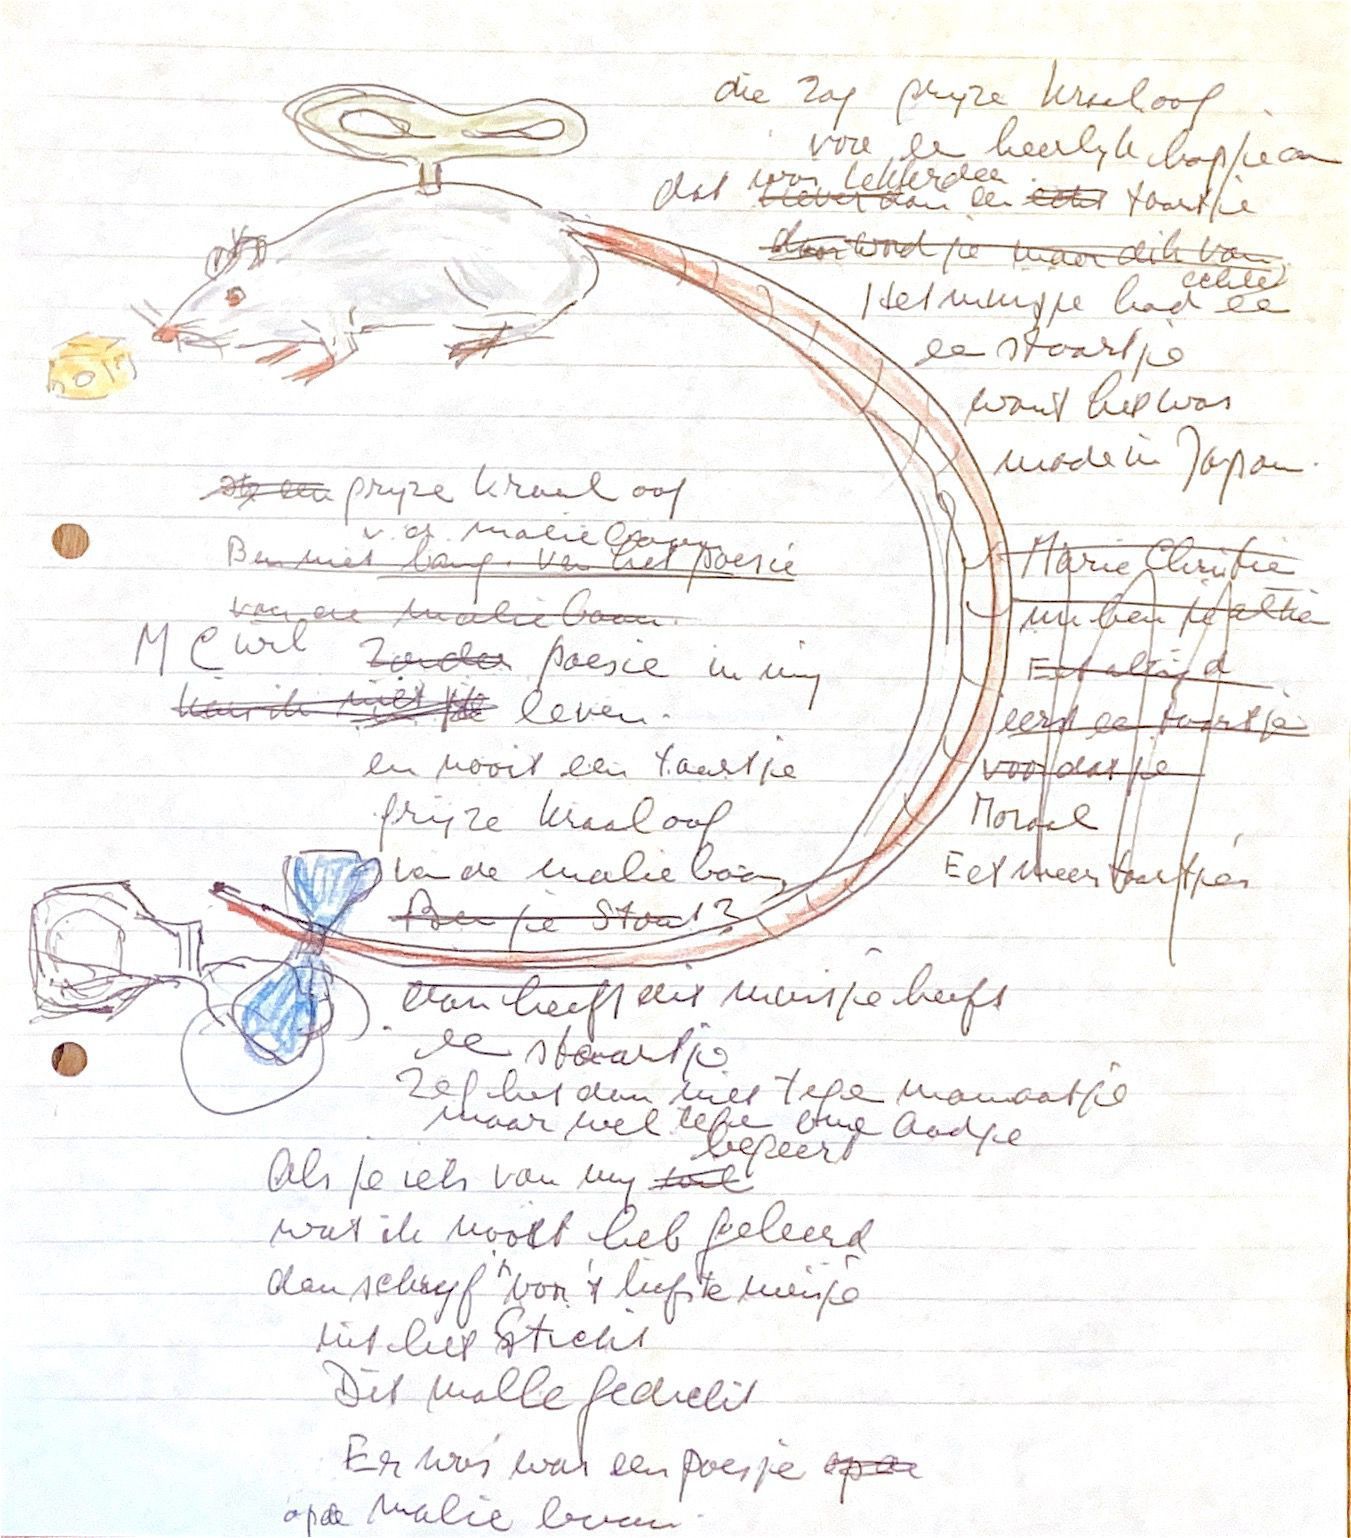 die zag grijze kraaloog
voor een heerlijk hapje aan
dat was lekkerder
liever dan een echt taartje
daar word je maar dik van
echter
Het muisje had ee
ee staartje
want het was
made in Japan.
grijze kraaloog
v.d. maliebaan
Ben niet bang. Van het poesie
van de maliebaan.
M C wil zonder poesie in mij
kan ik niet leven.
en nooit een taartje
grijze kraaloog
van de maliebaan
Ben je stout?
Marie Christie
Eet altijd
eerst ee taartje
voordat je
Moraal
Eet meer taartjes
dan heeft dit muisje heeft
ee staartje
Zeg het dan niet tege mamaatje
maar wel tege
begeert
Als je iets van mij
wat ik nooit heb geleerd
dan schrijf "voor 't liefste meisje
uit het Sticht
Dit malle gedicht
Er was was een poesje op de
op de malie baan.